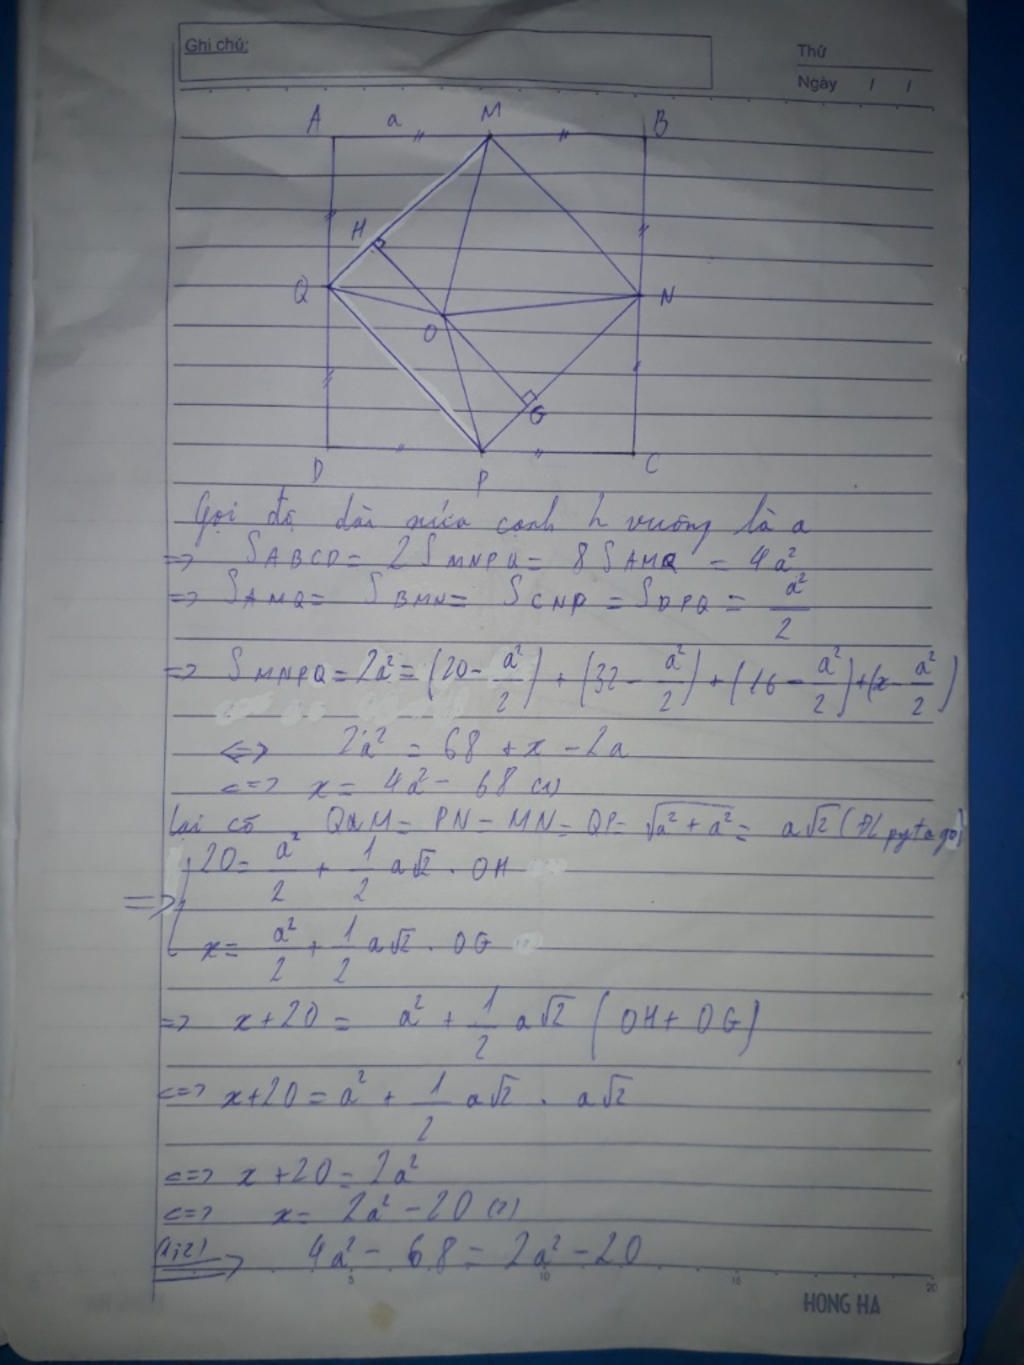 Ghi chú:
Thứ
Ngày / /
A a M B
H
Q N
O
G
D P C
Gọi độ dài nửa cạnh h vuông là a
=> S ABCD = 2 S MNPQ = 8 S AMQ = 4a²
=> S AMQ = S BMN = S CNP = S DPQ = a²/2
=> S MNPQ = 2a² = (20 - a²/2) + (32 - a²/2) + (16 - a²/2) + (x - a²/2)
<=> 2a² = 68 + x - 2a
<=> x = 4a² - 68 (1)
Lại có QM = PN = MN = QP = √a² + a² = a√2 (ĐL pytago)
=> 20 = a²/2 + 1/2 a√2 . OH
x = a²/2 + 1/2 a√2 . OG
=> x + 20 = a² + 1/2 a√2 (OH + OG)
<=> x + 20 = a² + 1/2 a√2 . a√2
<=> x + 20 = 2a²
<=> x = 2a² - 20 (2)
(1;2) => 4a² - 68 = 2a² - 20
5 10 15 20
HONG HA